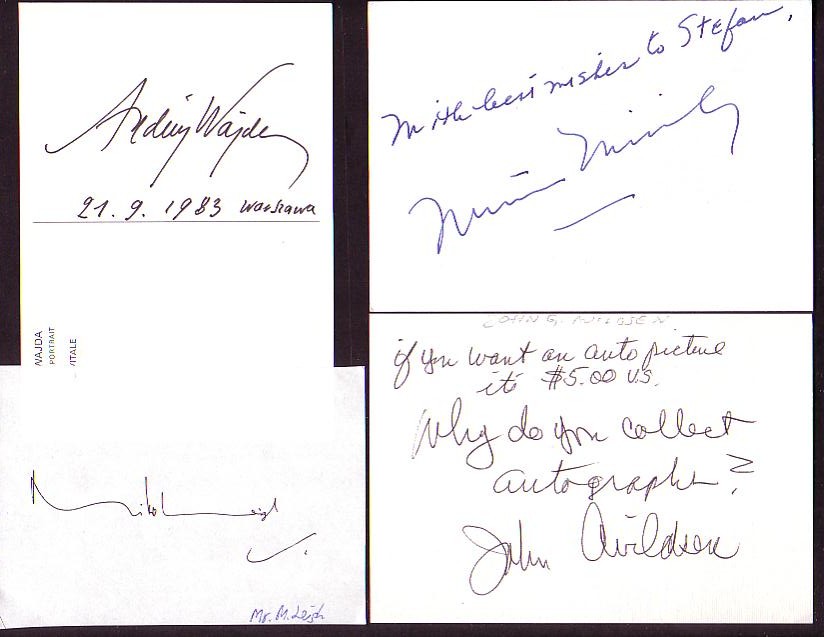 Andrzej Wajda
21. 9. 1983 Warszawa
WAJDA
PORTRAIT
ITALE
Mike Leigh
Mr. M. Leigh
With best wishes to Stefan,
if you want an auto picture
its $5.00 U.S.
Why do you collect
autographs?
John Avildsen